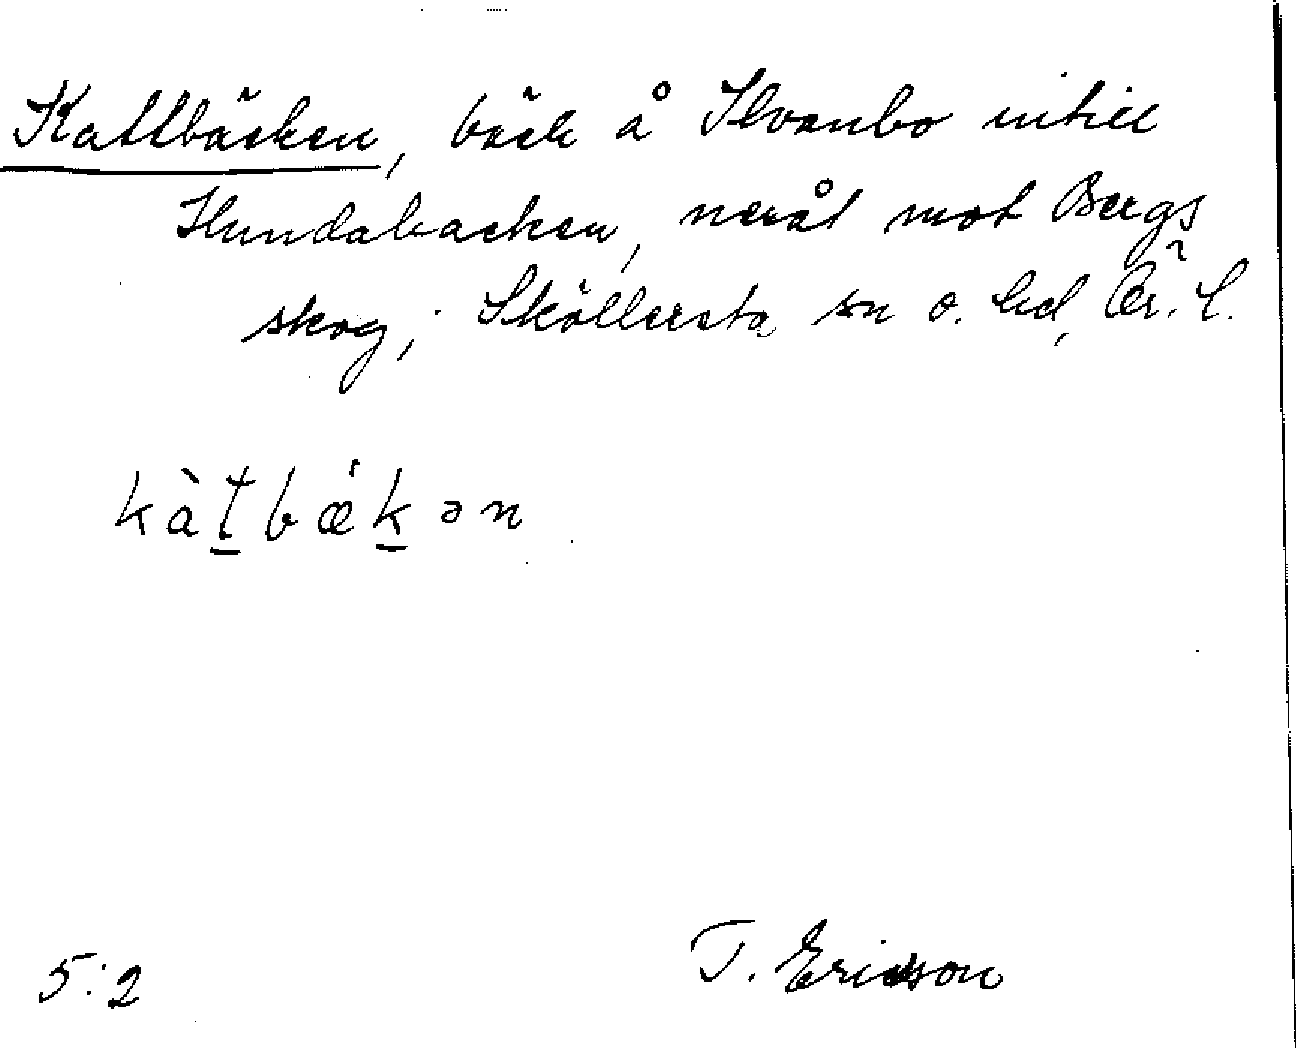 Kattbäcken, bäck å Skvanbo intill
Hundabacken, neråt mot Bergs
skog; Sköllersta sn o. hd, Ör. l.
kàt̲bæ̍k̲ən
5:2
T. Ericsson